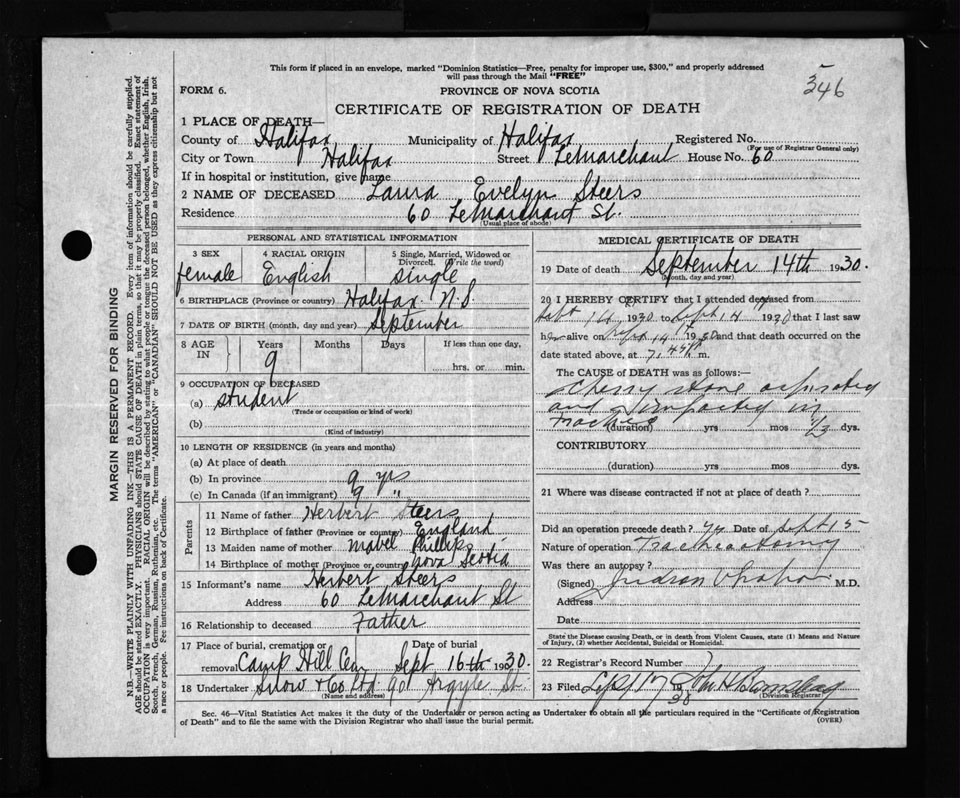 This form if placed in an envelope, marked "Dominion Statistics—Free, penalty for improper use, $300," and properly addressed
will pass through the Mail "FREE"
346
FORM 6.
PROVINCE OF NOVA SCOTIA
CERTIFICATE OF REGISTRATION OF DEATH
1 PLACE OF DEATH—
County of Halifax Municipality of Halifax Registered No.
(For use of Registrar General only)
City or Town Halifax Street LeMarchant House No. 60
If in hospital or institution, give name
2 NAME OF DECEASED Laura Evelyn Steers
Residence 60 LeMarchant St.
(Usual place of abode)
PERSONAL AND STATISTICAL INFORMATION
3 SEX 4 RACIAL ORIGIN 5 Single, Married, Widowed or
Divorced. (Write the word)
female English single
6 BIRTHPLACE (Province or country) Halifax N.S.
7 DATE OF BIRTH (month, day and year) September
8 AGE IN Years Months Days If less than one day,
9 hrs. or min.
9 OCCUPATION OF DECEASED
(a) student
(Trade or occupation or kind of work)
(b)
(Kind of industry)
10 LENGTH OF RESIDENCE (in years and months)
(a) At place of death
(b) In province 9 yrs
(c) In Canada (if an immigrant) 9 "
Parents
11 Name of father Herbert Steers
12 Birthplace of father (Province or country) England
13 Maiden name of mother Mabel Phillips
14 Birthplace of mother (Province or country) Nova Scotia
15 Informant's name Herbert Steers
Address 60 LeMarchant St
16 Relationship to deceased Father
17 Place of burial or removal Camp Hill Cem Date of burial Sept 16th 1930.
18 Undertaker Snow & Co Ltd. 90 Argyle St.
(Name and address)
MEDICAL CERTIFICATE OF DEATH
19 Date of death September 14th 1930.
(Month, day and year)
20 I HEREBY CERTIFY that I attended deceased from
Sept 14 1930 to Sept 14 1930 that I last saw
her alive on Sept 14 1930 and that death occurred on the
date stated above, at 7.45 m.
The CAUSE of DEATH was as follows:—
Cherry stone aspirated
and impacted in
trachea
(duration) yrs mos 1/3 dys.
CONTRIBUTORY
(duration) yrs mos dys.
21 Where was disease contracted if not at place of death?
Did an operation precede death? Date of Sept 15
Nature of operation Tracheotomy
Was there an autopsy?
(Signed) Judson M.D.
Address
Date
State the Disease causing Death, or in death from Violent Causes, state (1) Means and Nature
of Injury, (2) whether Accidental, Suicidal or Homicidal.
22 Registrar's Record Number
23 Filed Sept 17 1930
Division Registrar
Sec. 46—Vital Statistics Act makes it the duty of the Undertaker or person acting as Undertaker to obtain all the particulars required in the "Certificate of Registration
of Death" and to file the same with the Division Registrar who shall issue the burial permit.
(OVER)
MARGIN RESERVED FOR BINDING
N.B.—WRITE PLAINLY WITH UNFADING INK—THIS IS A PERMANENT RECORD. Every item of information should be carefully supplied.
AGE should be stated EXACTLY. PHYSICIANS should STATE CAUSE OF DEATH in plain terms, so that it may be properly classified. Exact statement of
OCCUPATION is very important. RACIAL ORIGIN will be described by stating to what people or tongue the deceased person belonged, whether English, Irish,
Scotch, French, German, Russian, Ruthenian, etc. The terms "AMERICAN" or "CANADIAN" SHOULD NOT BE USED as they express citizenship but not
a race or people. See instructions on back of Certificate.